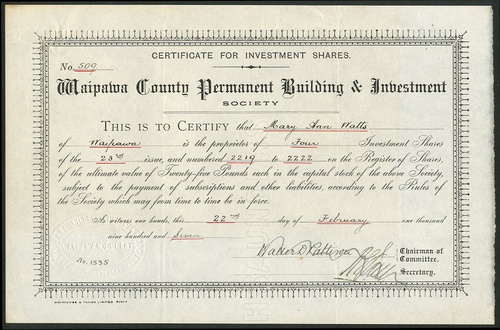 CERTIFICATE FOR INVESTMENT SHARES.
No. 509
Waipawa County Permanent Building & Investment
SOCIETY
THIS IS TO CERTIFY that Mary Ann Watts
of Waipawa is the proprietor of Four Investment Shares
of the 23rd issue, and numbered 2219 to 2222 on the Register of Shares,
of the ultimate value of Twenty-five Pounds each in the capital stock of the above Society,
subject to the payment of subscriptions and other liabilities, according to the Rules of
the Society which may from time to time be in force.
As witness our hands, this 22nd day of February one thousand
nine hundred and Seven
WAIPAWA COUNTY
Walter D Pattison
Chairman of
Committee.
No. 1535
Secretary.